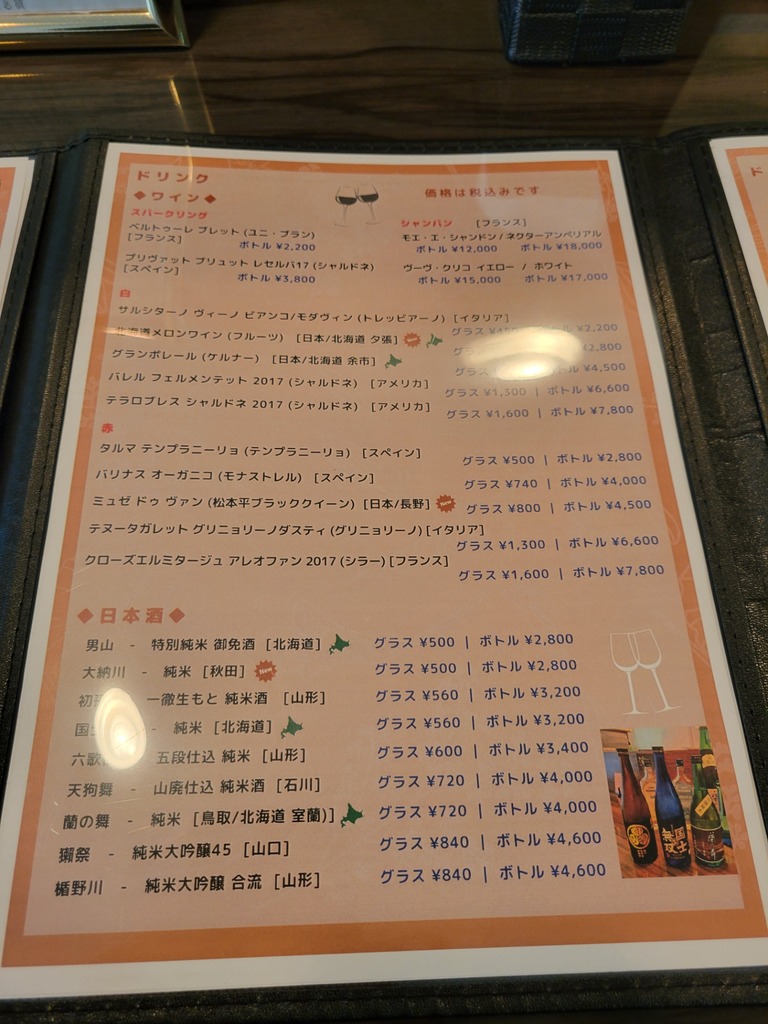 ドリンク
◆ワイン◆
価格は税込みです
スパークリング
ベルトゥーレ ブレット (ユニ・ブラン)
[フランス]
ボトル ¥2,200
プリヴァット ブリュット レセルバ17 (シャルドネ)
[スペイン]
ボトル ¥3,800
シャンパン [フランス]
モエ・エ・シャンドン / ネクターアンペリアル
ボトル ¥12,000 ボトル ¥18,000
ヴーヴ・クリコ イエロー / ホワイト
ボトル ¥15,000 ボトル ¥17,000
白
サルシターノ ヴィーノ ビアンコ/モダヴィン (トレッビアーノ) [イタリア]
グラス ボトル ¥2,200
北海道メロンワイン (フルーツ) [日本/北海道 夕張] New
¥2,800
グランポレール (ケルナー) [日本/北海道 余市]
グラス ¥4,500
バレル フェルメンテット 2017 (シャルドネ) [アメリカ]
グラス ¥1,300 | ボトル ¥6,600
テラロブレス シャルドネ 2017 (シャルドネ) [アメリカ]
グラス ¥1,600 | ボトル ¥7,800
赤
タルマ テンプラニーリョ (テンプラニーリョ) [スペイン]
グラス ¥500 | ボトル ¥2,800
バリナス オーガニコ (モナストレル) [スペイン]
グラス ¥740 | ボトル ¥4,000
ミュゼ ドゥ ヴァン (松本平ブラッククイーン) [日本/長野] New
グラス ¥800 | ボトル ¥4,500
テヌータガレット グリニョリーノダスティ (グリニョリーノ) [イタリア]
グラス ¥1,300 | ボトル ¥6,600
クローズエルミタージュ アレオファン 2017 (シラー) [フランス]
グラス ¥1,600 | ボトル ¥7,800
◆日本酒◆
男山 - 特別純米 御免酒 [北海道] グラス ¥500 | ボトル ¥2,800
大納川 - 純米 [秋田] New グラス ¥500 | ボトル ¥2,800
初孫 一徹生もと 純米酒 [山形] グラス ¥560 | ボトル ¥3,200
国士 - 純米 [北海道] グラス ¥560 | ボトル ¥3,200
六歌 五段仕込 純米 [山形] グラス ¥600 | ボトル ¥3,400
天狗舞 - 山廃仕込 純米酒 [石川] グラス ¥720 | ボトル ¥4,000
蘭の舞 - 純米 [鳥取/北海道 室蘭)] グラス ¥720 | ボトル ¥4,000
獺祭 - 純米大吟醸45 [山口] グラス ¥840 | ボトル ¥4,600
楯野川 - 純米大吟醸 合流 [山形] グラス ¥840 | ボトル ¥4,600
国士無双